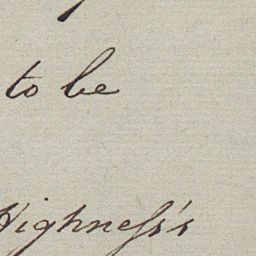 to be
Highneſs's